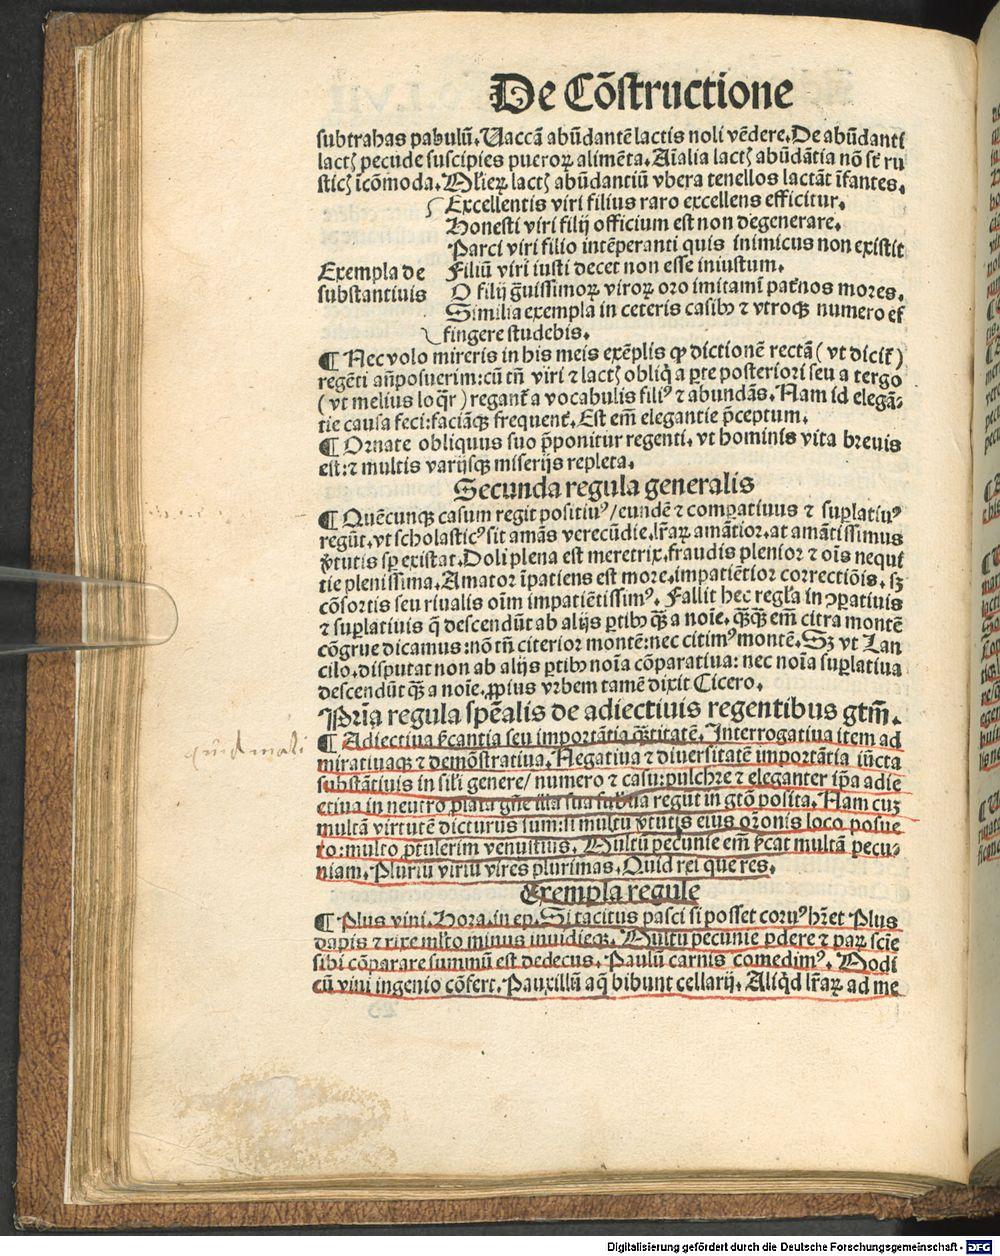 De Cōstructione
subtrahas pabulū. Vaccā abūdantē lactis noli vēdere. De abūdanti
lactꝭ pecude suscipies pueroꝝ alimēta. Aīalia lactꝭ abūdātia nō st̄ ru
sticꝭ īcōmoda. Ml̓ieꝝ lactꝭ abūdantiū vbera tenellos lactāt īfantes.
Excellentis viri filius raro excellens efficitur.
Honesti viri filij officium est non degenerare.
Parci viri filio intēperanti quis inimicus non existit
Exempla de
substantiuis
Filiū viri iusti decet non esse iniustum.
O filij g̃uissimoꝝ viroꝝ oro imitamī pat̄nos mores.
Similia exempla in ceteris casibꝰ ⁊ vtroqꝫ numero ef
fingere studebis.
¶ Nec volo mireris in his meis exēplis ꝙ dictionē rectā (vt dicit̄)
regēti añposuerim: cū tñ viri ⁊ lactꝭ obliq̄ a ꝑte posteriori seu a tergo
(vt melius loq̄r) regant̄ a vocabulis filiꝰ ⁊ abundās. Nam id elegā⸗
tie causa feci: faciāqꝫ frequent̄. Est em̄ elegantie p̄ceptum.
¶ Ornate obliquus suo p̄ponitur regenti. vt hominis vita breuis
est: ⁊ multis varijsqꝫ miserijs repleta.
Secunda regula generalis
¶ Quēcunqꝫ casum regit positiuꝰ/ eundē ⁊ compatiuus ⁊ suplatiuꝰ
regūt. vt scholasticꝰ sit amās verecūdie. lr̄aꝝ amātior. at amātissimus
v̓tutis sp̄ existat. Doli plena est meretrix. fraudis plenior ⁊ oīs nequi
tie plenissima. Amator īpatiens est more. impatiētior correctiōis. sꝫ
cōsortis seu riualis oīm impatiētissimꝰ. Fallit hec regl̓a in ꝯꝑatiuis
⁊ suplatiuis q̄ descendūt ab alijs ꝑtibꝰ qꝫ̄ a noīe. qꝫ̄qꝫ̄ em̄ citra montē
cōgrue dicamus: nō tñ citerior montē: nec citimꝰ montē. Sꝫ vt Lan
cilo. disputat non ab alijs ꝑtibꝰ noīa cōparatiua: nec noīa suꝑlatiua
descendūt qꝫ̄ a noīe. ꝓpius vrbem tamē dixit Cicero.
Prīa regula spēalis de adiectiuis regentibus gtm̄.
¶ Adiectiua s̓cantia seu importātia q̄titatē. Interrogatiua item ad
miratiuaqꝫ ⁊ demōstratiua. Negatiua ⁊ diuersitatē importātia iūcta
substātiuis in sil̓i genere/ numero ⁊ casu: pulchre ⁊ eleganter ip̄a adie
ctiua in neutro plata gn̄e illa sua subīua regūt in gtō posita. Nam cuꝫ
multā virtutē dicturus sum: si multū v̓tutis eius or̄onis loco posue
ro: multo ꝓtulerim venustius. Multū pecunie em̄ s̓cat multā pecu⸗
niam. Pluriū viriū vires plurimas. Quid rei que res.
Exempla regule
¶ Plus vini. Hora. in ep. Si tacitus pasci si posset coruꝰ hr̄et Plus
dapis ⁊ rixe ml̓to minus inuidieqꝫ. Multū pecunie ꝑdere ⁊ paꝝ scīe
sibi cōparare summū est dedecus. Paulū carnis comedimꝰ. Modi
cū vini ingenio cōfert. Pauxillū aq̄ bibunt cellarij. Aliq̄d lr̄aꝝ ad me
quid mali
Digitalisierung gefördert durch die Deutsche Forschungsgemeinschaft - DFG